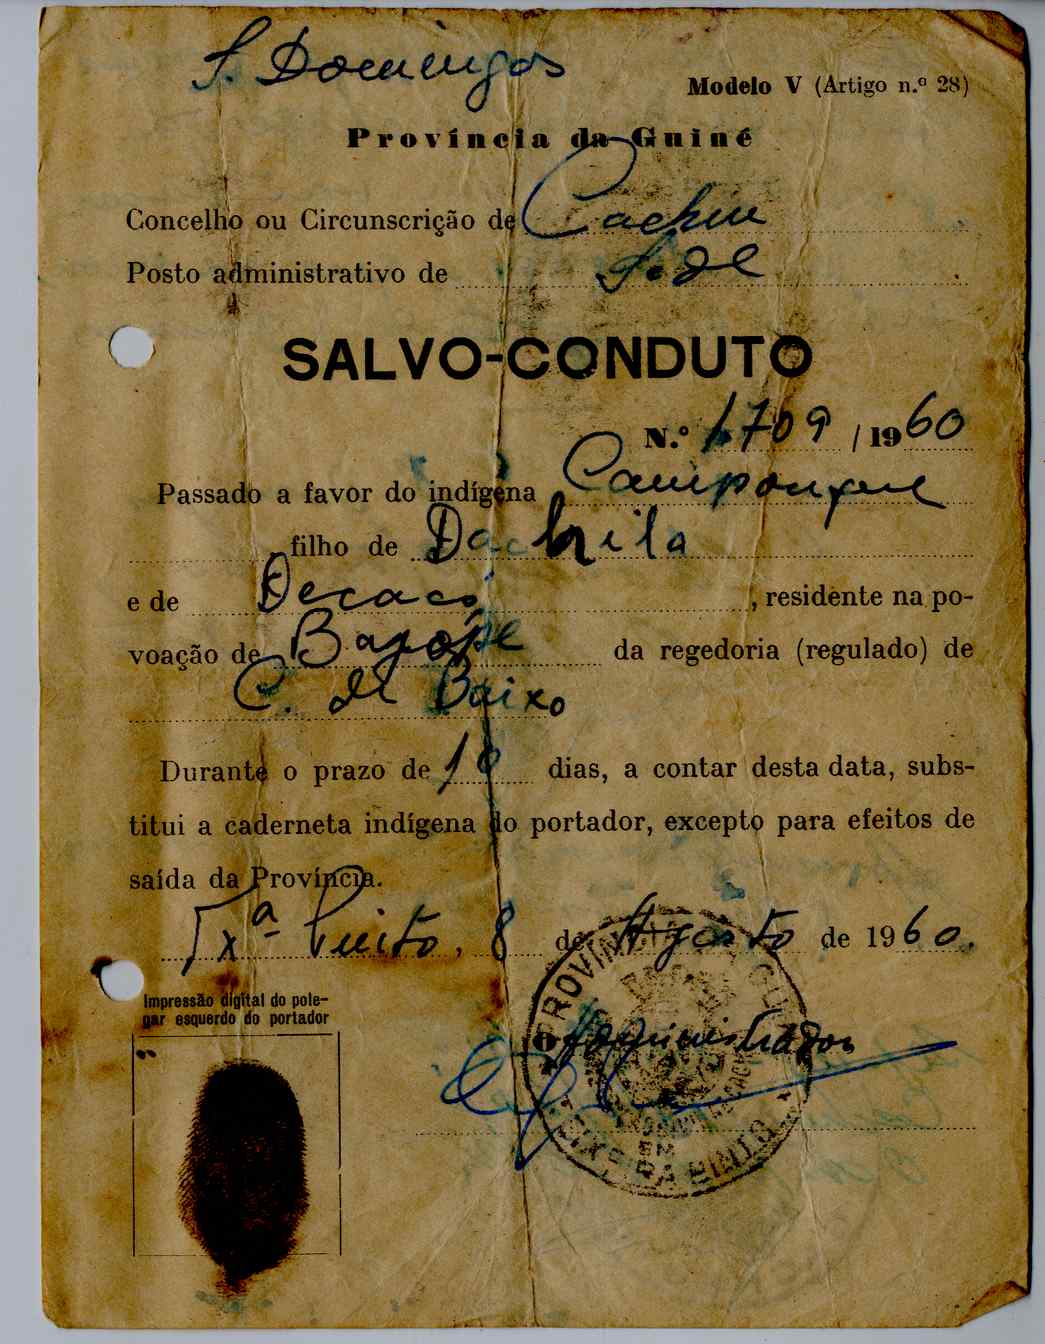 S. Domingos
Modelo V (Artigo n.º 28)
Província da Guiné
Concelho ou Circunscrição de Cacheu
Posto administrativo de Sede
SALVO-CONDUTO
N.º 1.709 / 1960
Passado a favor do indígena
filho de Dachila
e de Decacó, residente na po-
voação de Bagópe da regedoria (regulado) de
C. de Baixo
Durante o prazo de 10 dias, a contar desta data, subs-
titui a caderneta indígena do portador, excepto para efeitos de
saída da Província.
Tx.ª Pinto, 8 de Agosto de 1960.
Impressão digital do pole-
gar esquerdo do portador
O Administrador
PROVÍNCIA
EM
TEIXEIRA PINTO